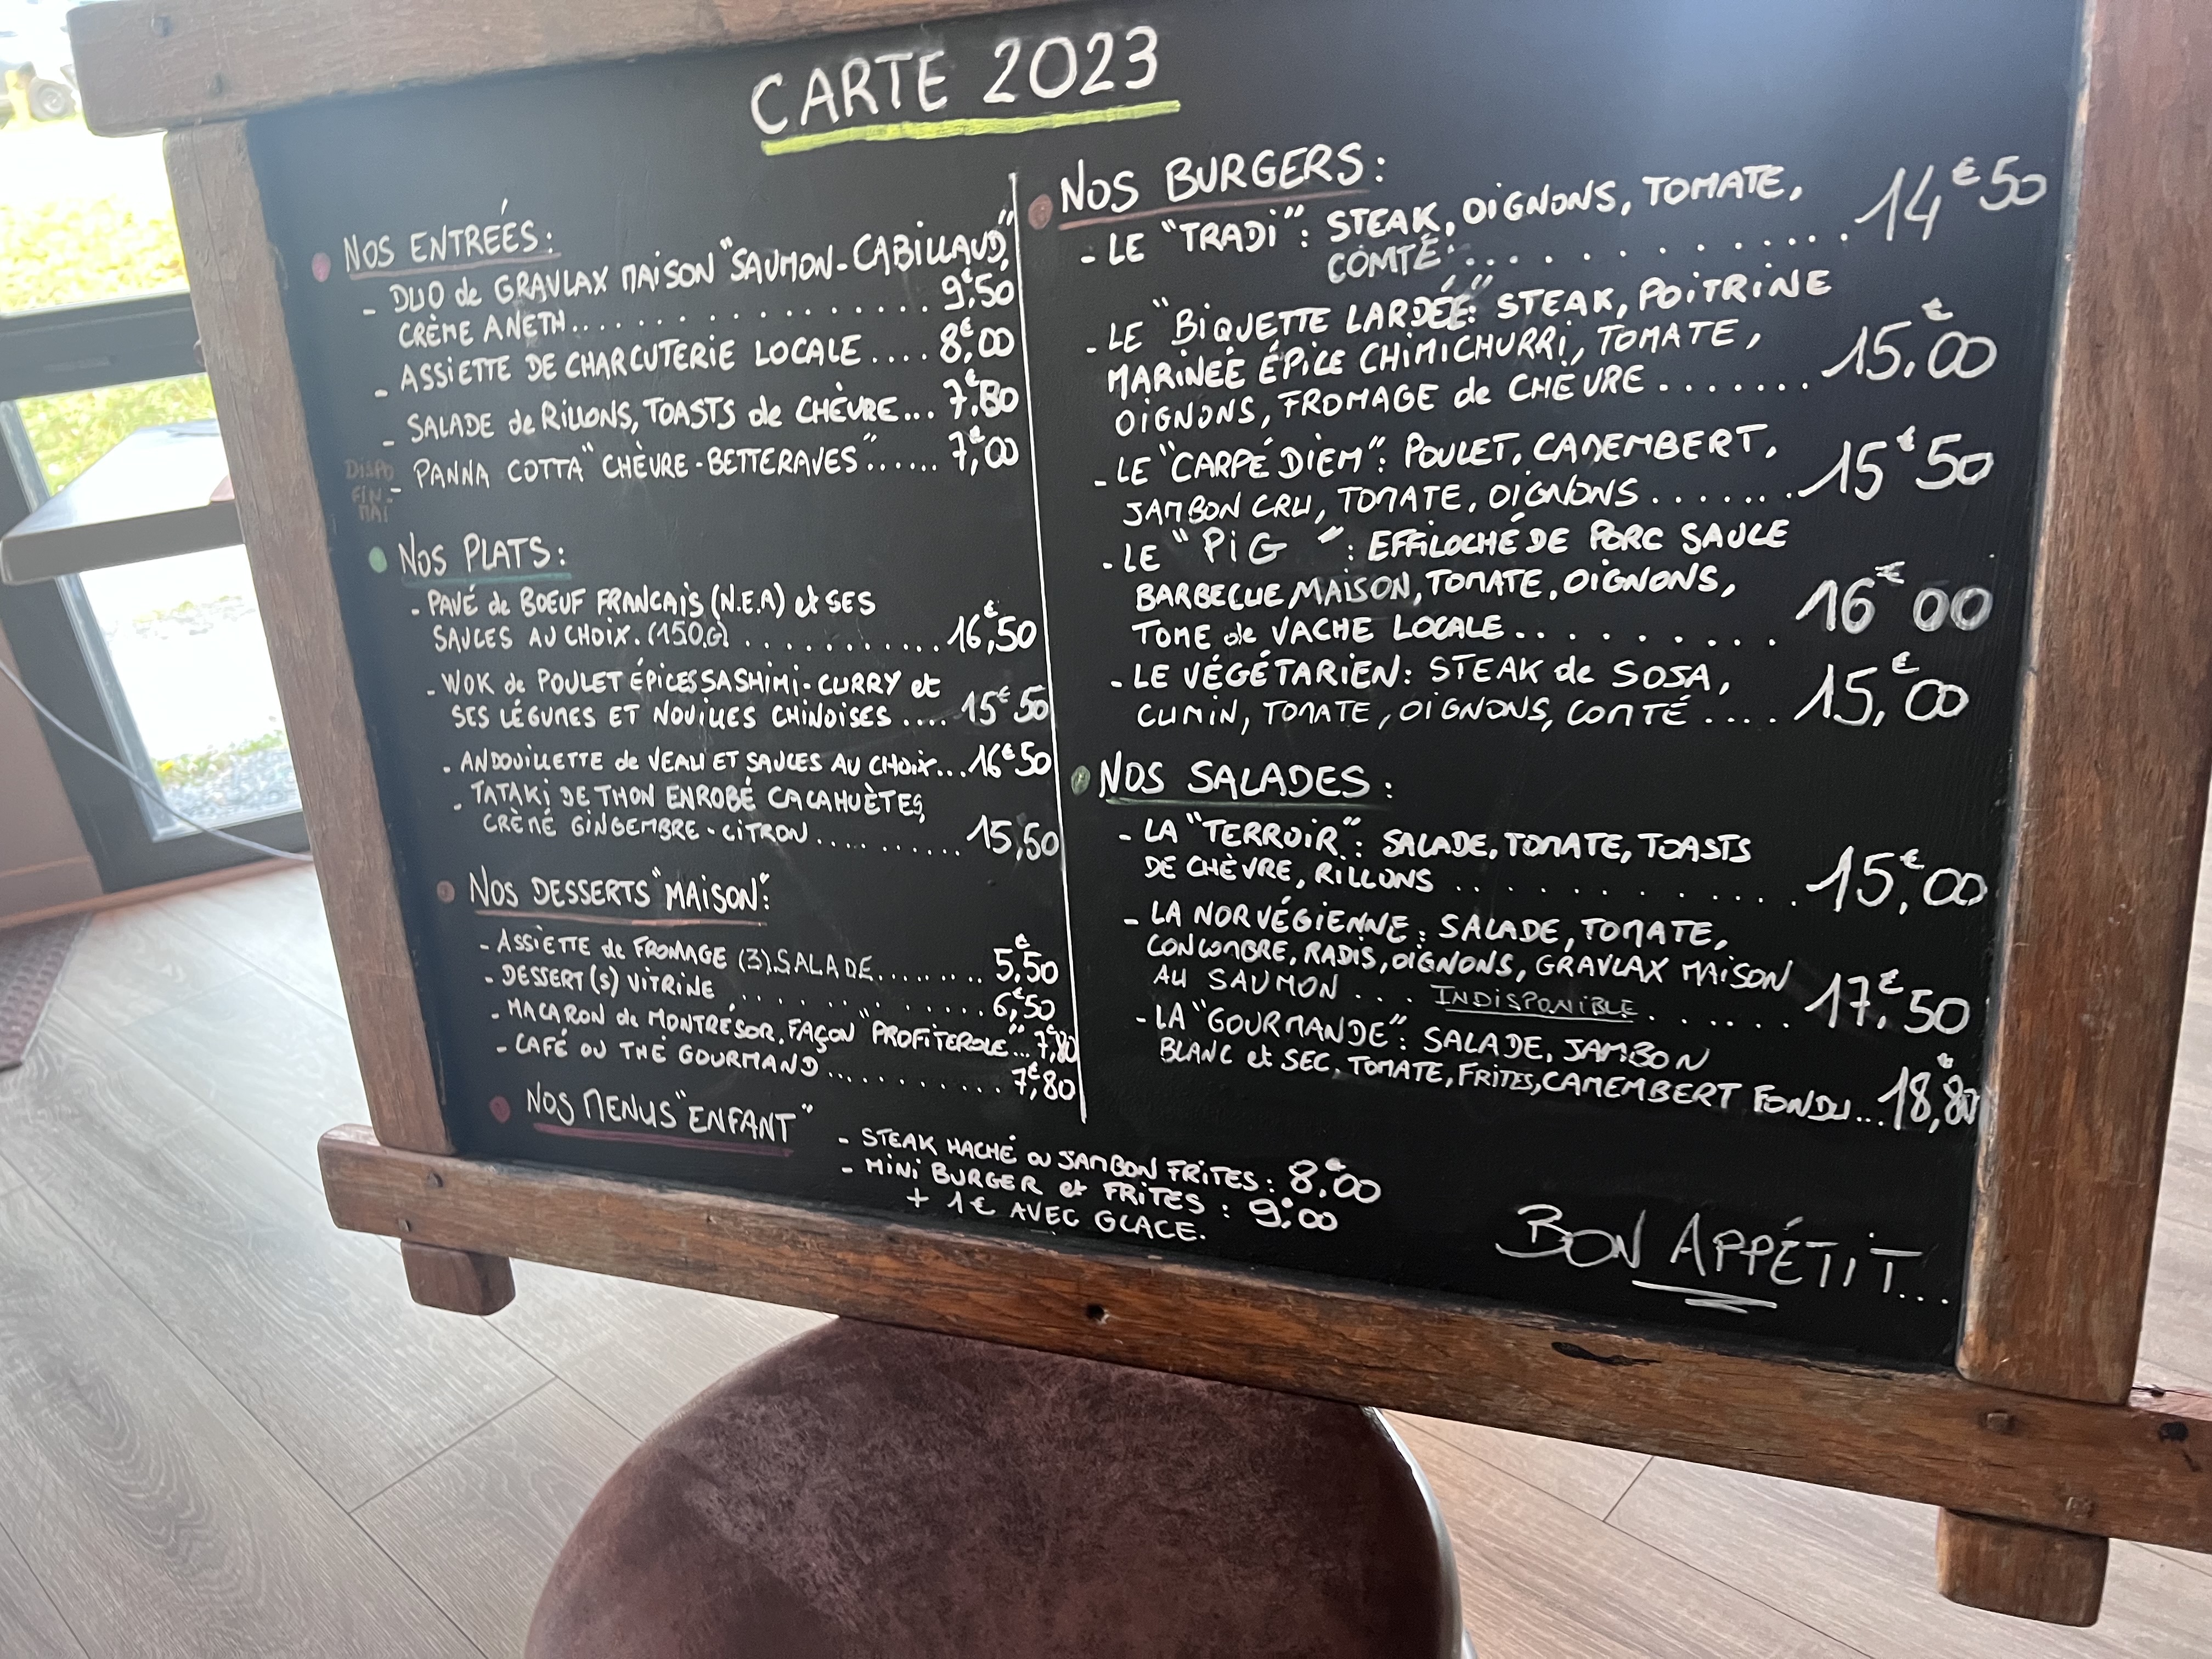 CARTE 2023
NOS ENTRÉES:
- DUO de GRAVLAX MAISON "SAUMON-CABILLAUD",
CRÈME ANETH.................. 9,€50
- ASSIETTE DE CHARCUTERIE LOCALE.... 8,€00
- SALADE de RILLONS, TOASTS de CHÈVRE... 7,€80
DISPO
FIN
MAI
- PANNA COTTA "CHÈVRE-BETTERAVES"...... 7,€00
NOS PLATS:
- PAVÉ de BOEUF FRANCAIS (N.E.A) et SES
SAUCES AU CHOIX. (150G)............ 16,€50
- WOK de POULET ÉPICES SASHIMI-CURRY et
SES LÉGUMES ET NOUILLES CHINOISES.... 15€50
- ANDOUILLETTE de VEAU ET SAUCES AU CHOIX... 16€50
- TATAKI DE THON ENROBÉ CACAHUÈTES,
CRÈME GINGEMBRE-CITRON........... 15,50
NOS DESSERTS "MAISON":
- ASSIETTE de FROMAGE (3).SALADE......... 5,€50
- DESSERT(S) VITRINE............... 6,€50
- MACARON de MONTRÉSOR, FAÇON "PROFITEROLE"... 7,€80
- CAFÉ OU THÉ GOURMAND............ 7,€80
NOS MENUS "ENFANT"
- STEAK HACHÉ OU JAMBON FRITES: 8,€00
- MINI BURGER et FRITES: 9,€00
+ 1€ AVEC GLACE.
NOS BURGERS:
- LE "TRADI": STEAK, OIGNONS, TOMATE,
COMTÉ.............. 14€50
- LE "BIQUETTE LARDÉE": STEAK, POITRINE
MARINÉE ÉPICE CHIMICHURRI, TOMATE,
OIGNONS, FROMAGE de CHÈVRE....... 15,€00
- LE "CARPÉ DIEM": POULET, CAMEMBERT,
JAMBON CRU, TOMATE, OIGNONS....... 15€50
- LE "PIG": EFFILOCHÉ DE PORC SAUCE
BARBECUE MAISON, TOMATE, OIGNONS,
TOME de VACHE LOCALE......... 16€00
- LE VÉGÉTARIEN: STEAK de SOJA,
CUMIN, TOMATE, OIGNONS, COMTÉ.... 15,€00
NOS SALADES:
- LA "TERROIR": SALADE, TOMATE, TOASTS
DE CHÈVRE, RILLONS............ 15,€00
- LA NORVÉGIENNE: SALADE, TOMATE,
CONCOMBRE, RADIS, OIGNONS, GRAVLAX MAISON
AU SAUMON... INDISPONIBLE...... 17,€50
- LA "GOURMANDE": SALADE, JAMBON
BLANC et SEC, TOMATE, FRITES, CAMEMBERT FONDU... 18,€80
BON APPÉTIT...